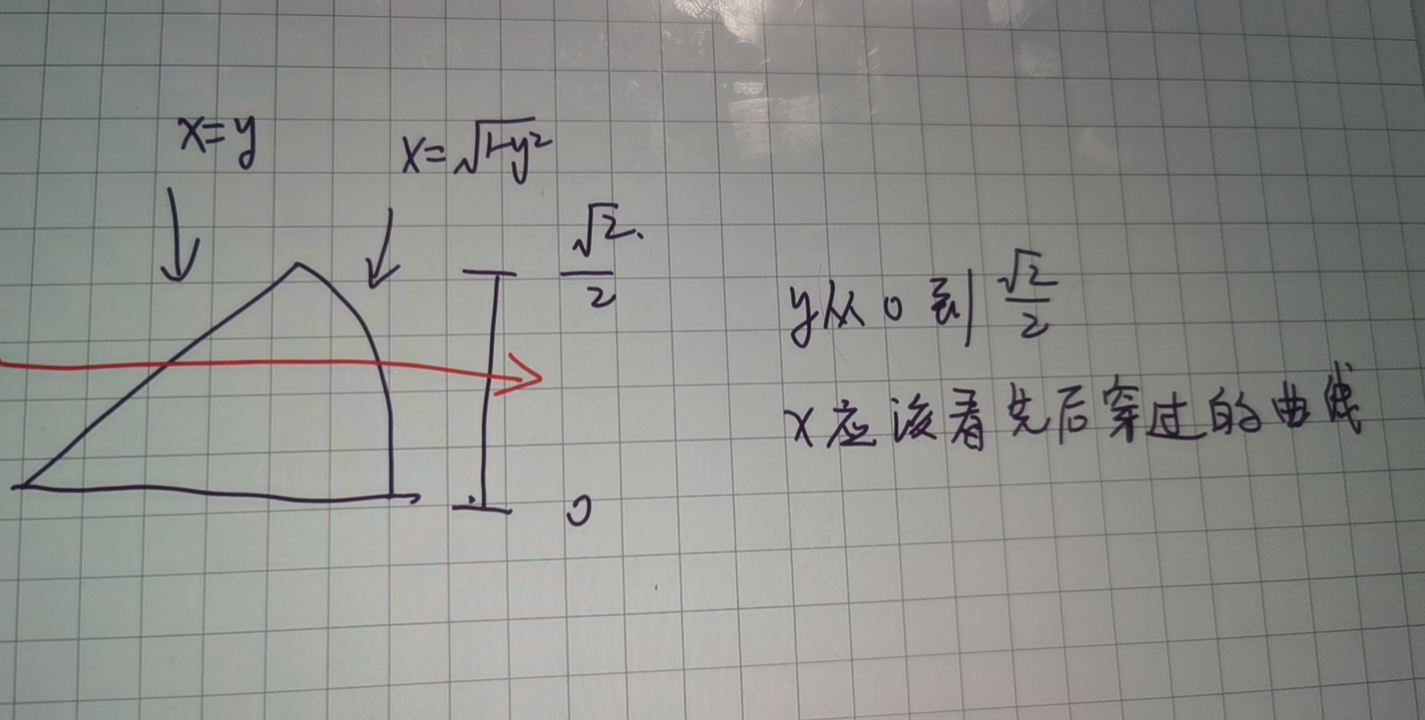 x=y
x=√1-y²
√2.
2
0
y从 0 到 √2/2
x应该看先后穿过的曲线